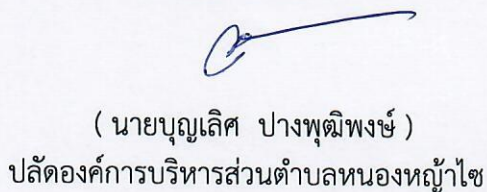 ( นายบุญเลิศ ปางพุฒิพงษ์ )
ปลัดองค์การบริหารส่วนตำบลหนองหญ้าไซ